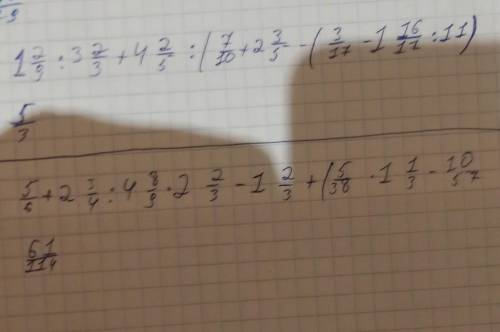 1 2/9 : 3 2/3 + 4 2/5 : (7/10 + 2 3/5 - (3/17 - 1 16/17 : 11)
5/3
5/6 + 2 3/4 : 4 8/9 · 2 2/3 - 1 2/3 + (5/38 · 1 1/3 - 10/57
61/114